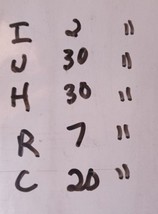 I 2 "
U 30 "
H 30 "
R 7 "
C 20 "